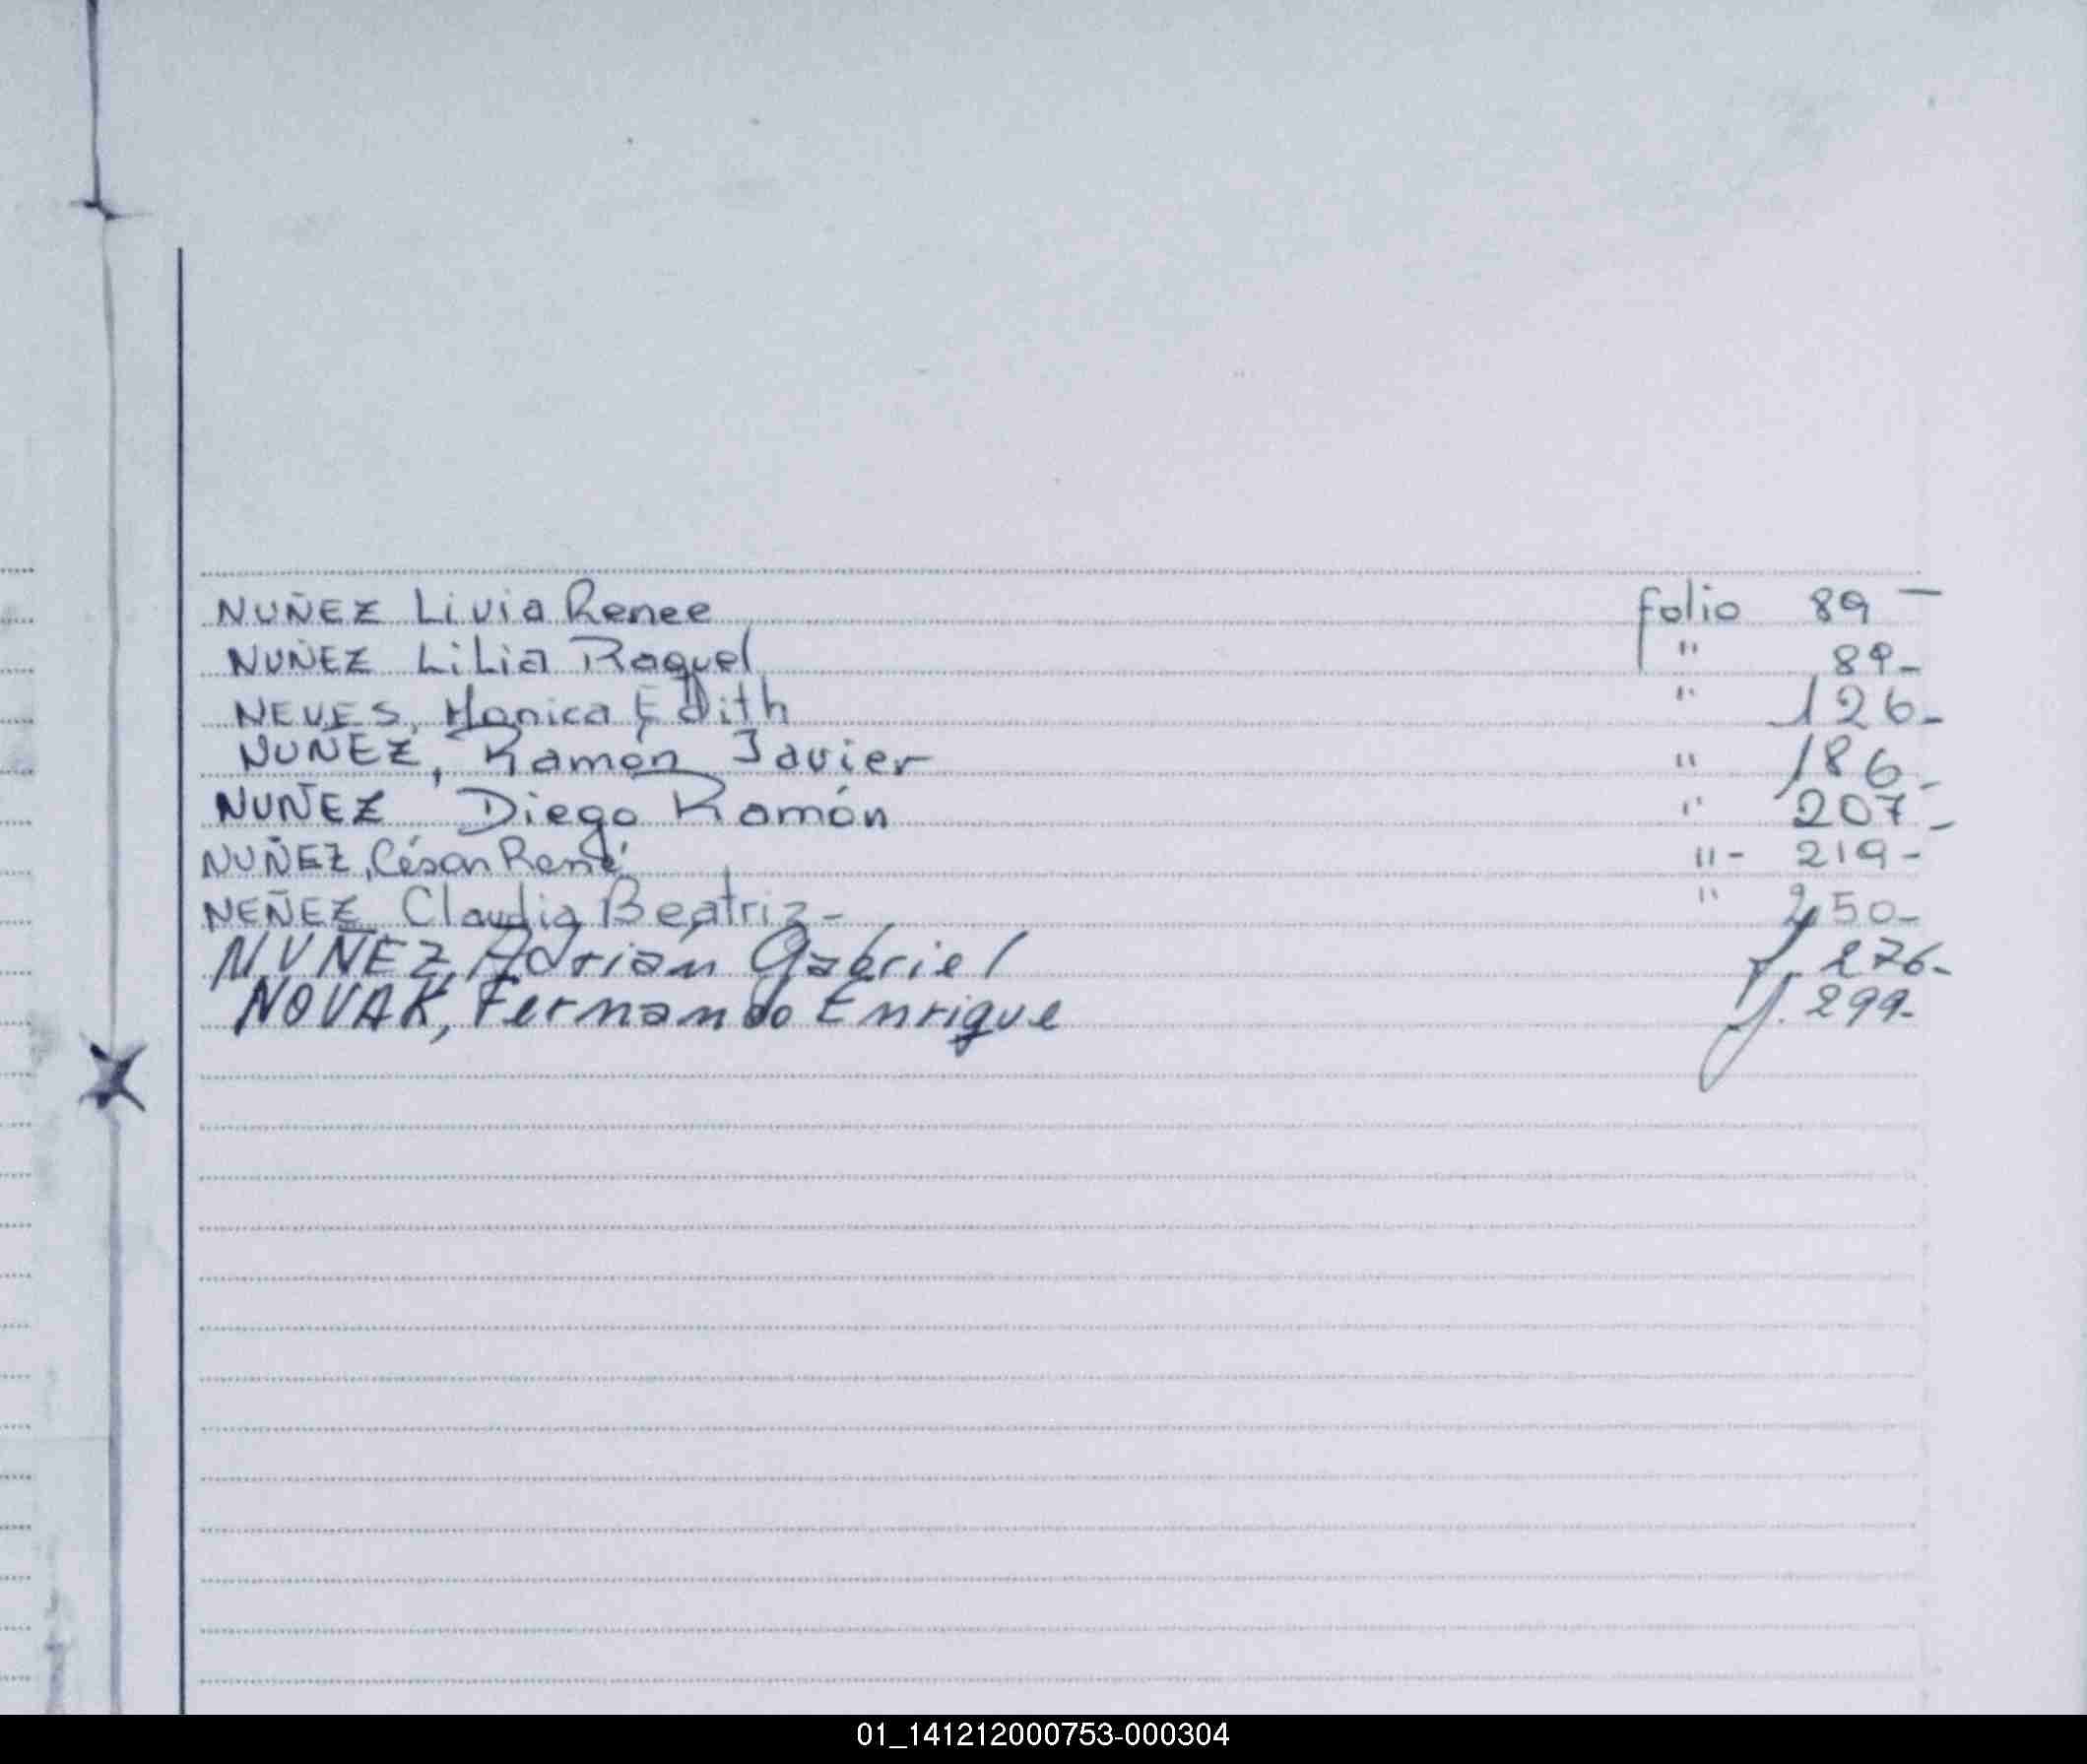 NUÑEZ Livia Renee folio 89 -
NUÑEZ LiLia Raquel " 89-
NEVES, Monica Edith " 126-
NUÑEZ, Ramón Javier " 186-
NUÑEZ Diego Ramón " 207-
NUÑEZ, César René " - 219-
NEÑEZ Claudia Beatriz- " 250-
NUÑEZ, Adrián Gabriel f. 276-
NOVAK, Fernando Enrique f. 299-
01_141212000753-000304